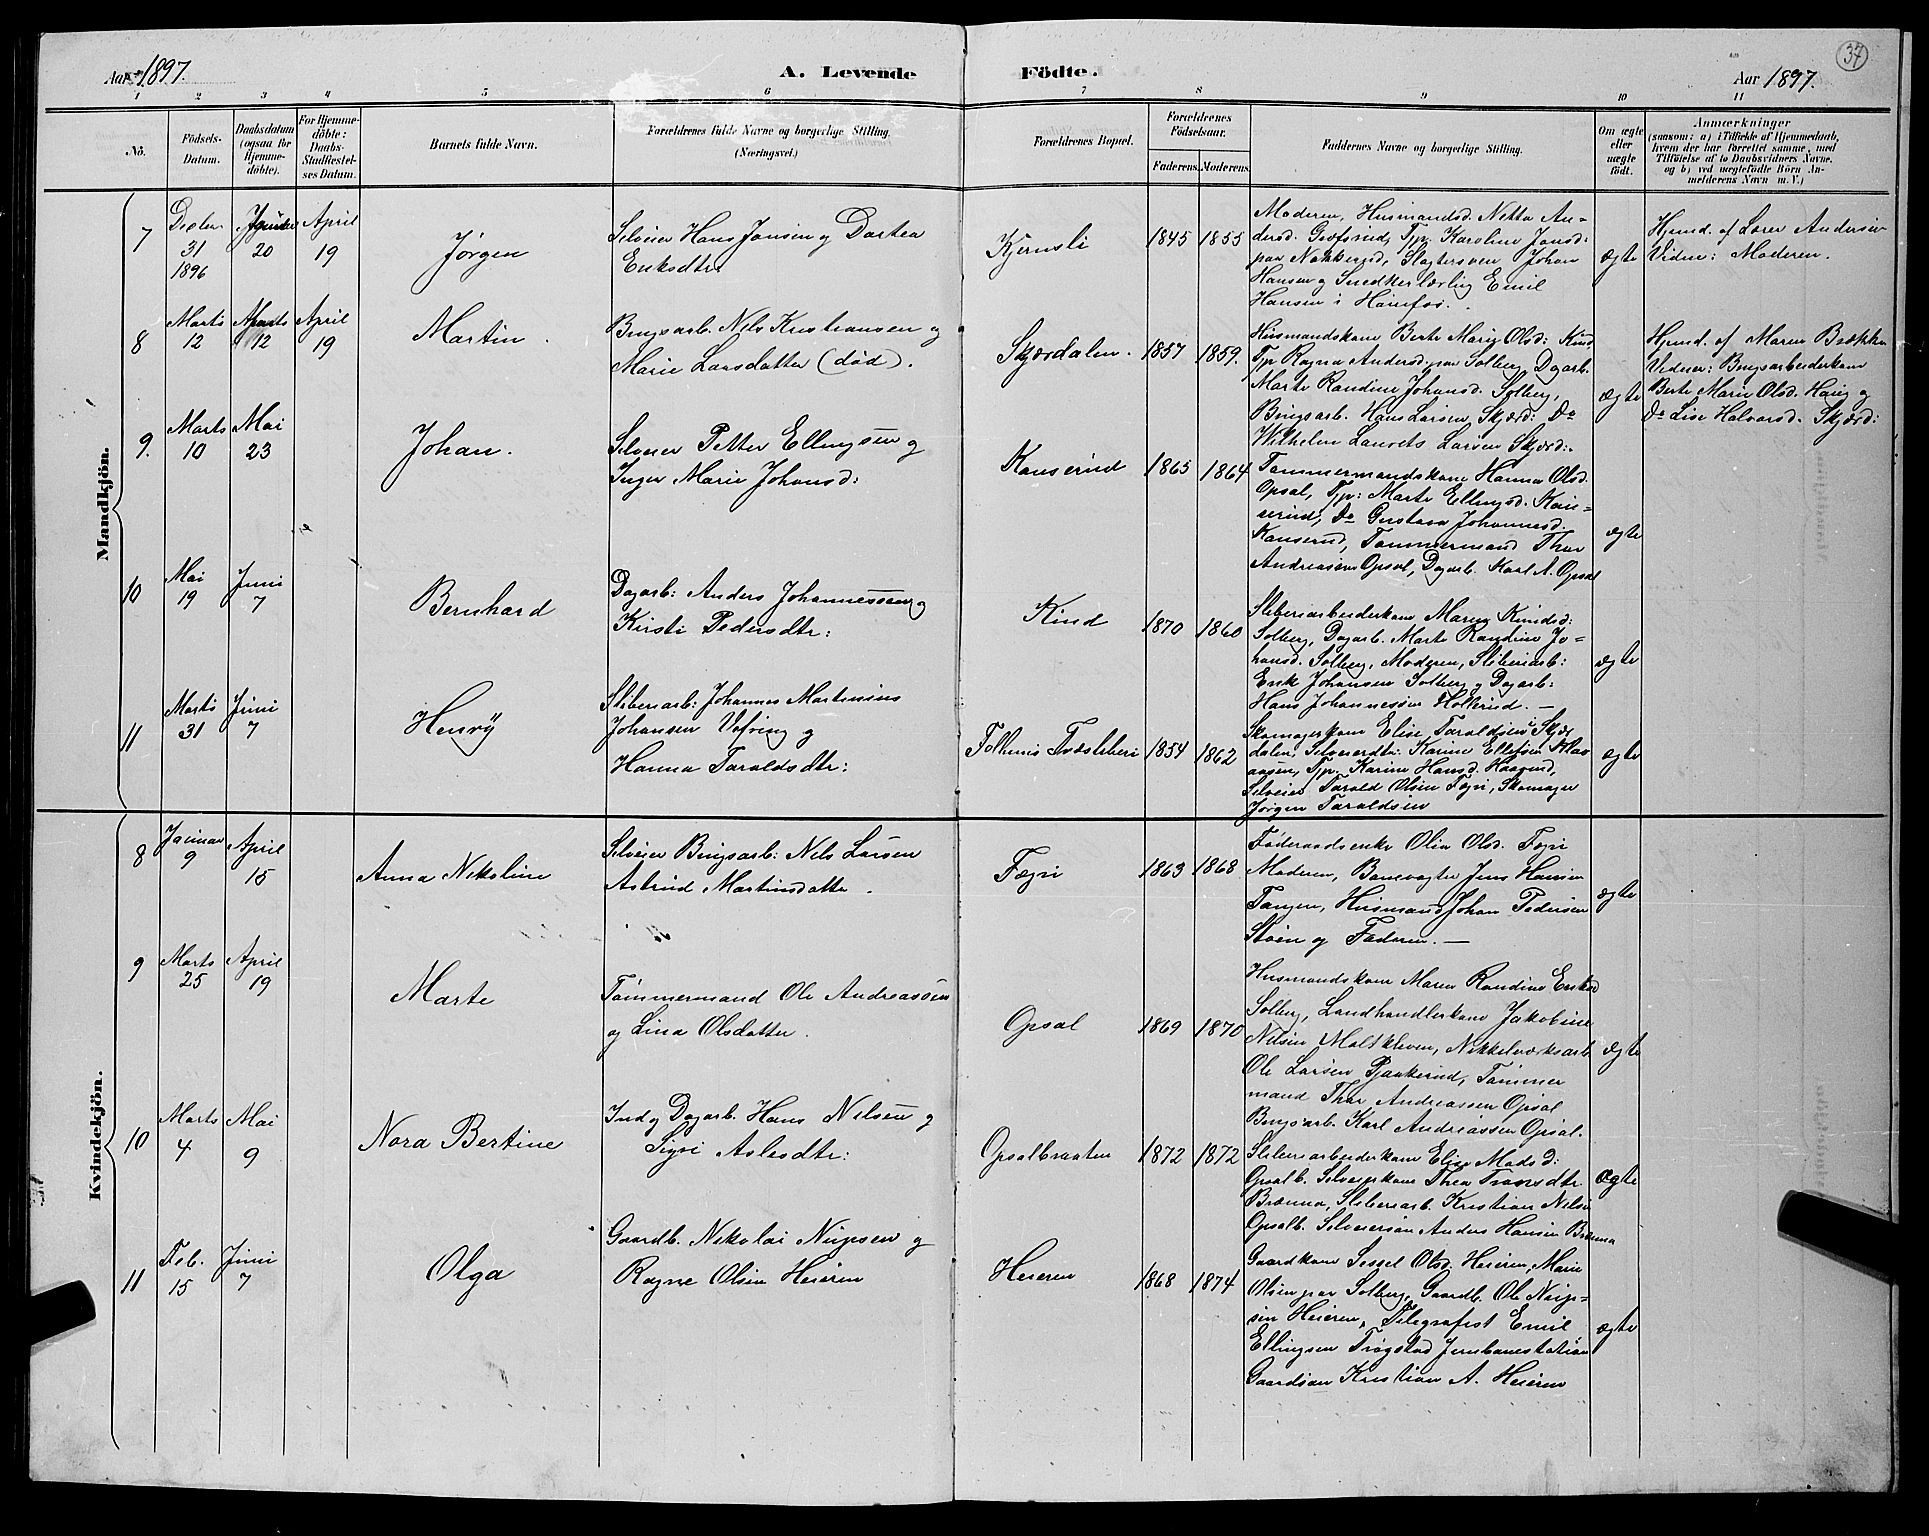 Aar 1897.
A. Levende
Födte.
Aar 1897.
37
1 2 3 4 5 6 7 8 9 10 11
No.
Födsels-
Datum.
Daabsdatum
(ogsaa for
Hjemme-
döbte).
For Hjemme-
döbte:
Daabs-
Stadfæstel-
ses Datum.
Barnets fulde Navn.
Forældrenes fulde Navne og borgerlige Stilling.
(Næringsvei.)
Forældrenes Bopæl.
Forældrenes
Födselsaar.
Faderens. Moderens.
Faddernes Navne og borgerlige Stilling.
Om ægte
eller
uægte
födt.
Anmærkninger
(saasom: a) i Tilfælde af Hjemmedaab,
hvem der har forrettet samme, med
Tilföielse af to Daabsvidners Navne.
og b) ved uægtefödte Börn An-
melderens Navn m. V.)
Mandkjön.
7
31
1896
20
April
19
Jørgen
Selveier Hans Jansen og Dortea
Eriksdtr
Kjernsli
1845 1855
Moderen, Husmandsd. Netta An-
dersd. Græfsrud, Tjp. Karoline Jansd.
paa Nakkerud, Slagtersven Johan
Hansen og Snedkerlærling Emil
Hansen i Hønefos.
ægte
Hjmd. af Lærer Andersen
Vidne: Moderen.
8
Marts
12
12
April
19
Martin.
Brugsarb. Nels Kristiansen og
Marie Larsdatter (død).
Skjærdalen.
1857 1859.
Husmandskone Berte Marie Olsd. Kind
Tjp Ragna Andersd. paa Solberg, Dagarb.
Marte Randine Johansd. Solberg,
Brugsarb. Hans Larsen Skjærd: Do
Wilhelm Laurets Larsen Skjærd:
ægte
Hjmd. af Maren Brække
Vidner: Brugsarbeiderkone
Berte Marie Olsd. Haug og
Do Lise Halvorsd. Skjærd:
9.
Marts
10
Mai
23
Johan.
Selveier Petter Ellingsen og
Inger Marie Johansd:
Konserud
1865 1864
Tømmermandskone Hanna Olsd.
Opsal, Tjp: Marte Ellingsd. Kon-
serud, Do Gustava Johannesd.
Konserud, Tømmermand Thor
Andreassen Opsal, Dagarb. Karl A. Opsal
ægte
10
Mai
19
Juni
7
Bernhard
Dagarb: Anders Johannessen og
Kirsti Pedersdtr:
Kind
1870 1860
Sliberiarbeiderkone Maren Knudsd:
Solberg, Dagarb. Marte Randine Jo-
hansd. Solberg, Moderen, Sliberiarb:
Erik Johansen Solberg og Dagarb:
Hans Johannesen Holkrud. —
ægte
11
Marts
31
Juni
7
Henry
Sliberiarb: Johannes Martinius
Johansen Vefring og
Hanna Taraldsdtr:
Follums Træsliberi
1854 1862
Skomagerkone Elise Taraldsen Skjær
dalen, Selveierdtr: Karine Ellefsen
Tjp. Karine Hansd. Haaverud,
Selveier Tarald Olsen Fægri, Skomager
Jørgen Taraldsen
ægte
Kvindekjön.
8
Januar
9
April
15
Anna Nikoline
Selveier Brugsarb: Nels Larsen
Astrid Martinsdatter.
Fægri
1863 1868
Føderaadsenke Olia Olsd. Fægri
Moderen, Banevogter Jens Hansen
Tangen, Husmand Johan Pedersen
Støen og Faderen. —
ægte
9
Marts
25
April
19
Marte
Tømmermand Ole Andreassen
og Lina Olsdatter.
Opsal
1869 1870
Husmandskone Maren Randine Eriksd
Solberg, Landhandlerkone Jakobine
Nilsen Moltkleven, Nikkelværksarb
Ole Larsen Pjaakerud, Tømmer
mand Thor Andreassen Opsal
Brugsarb. Karl Andreassen Opsal.
ægte
10
Marts
4
Mai
9
Nora Bertine
Ind. og Dagarb. Hans Nilsen og
Sigri Aslesdtr:
Opsalbraaten
1872 1872
Sliberiarbeiderkone Elise Madsd:
Opsalb. Selveierkone Thea Fransdtr
Brænna, Sliberiarb. Kristian Nilsen
Opsalb. Selveiersøn Anders Hansen Brænna
ægte
11
Feb.
15
Juni
7
Olga
Gaardb. Nikolai Nupsen og
Ragne Olsen Heieren
Heieren
1868 1874
Gaardkone Sessel Olsd. Heieren, Marie
Olsen paa Solberg, Gaardb. Ole Nup-
sen Heieren, Telegrafist Emil
Ellingsen Trøgstad Jernbanestation
Gaardsøn Kristian A. Heieren
ægte